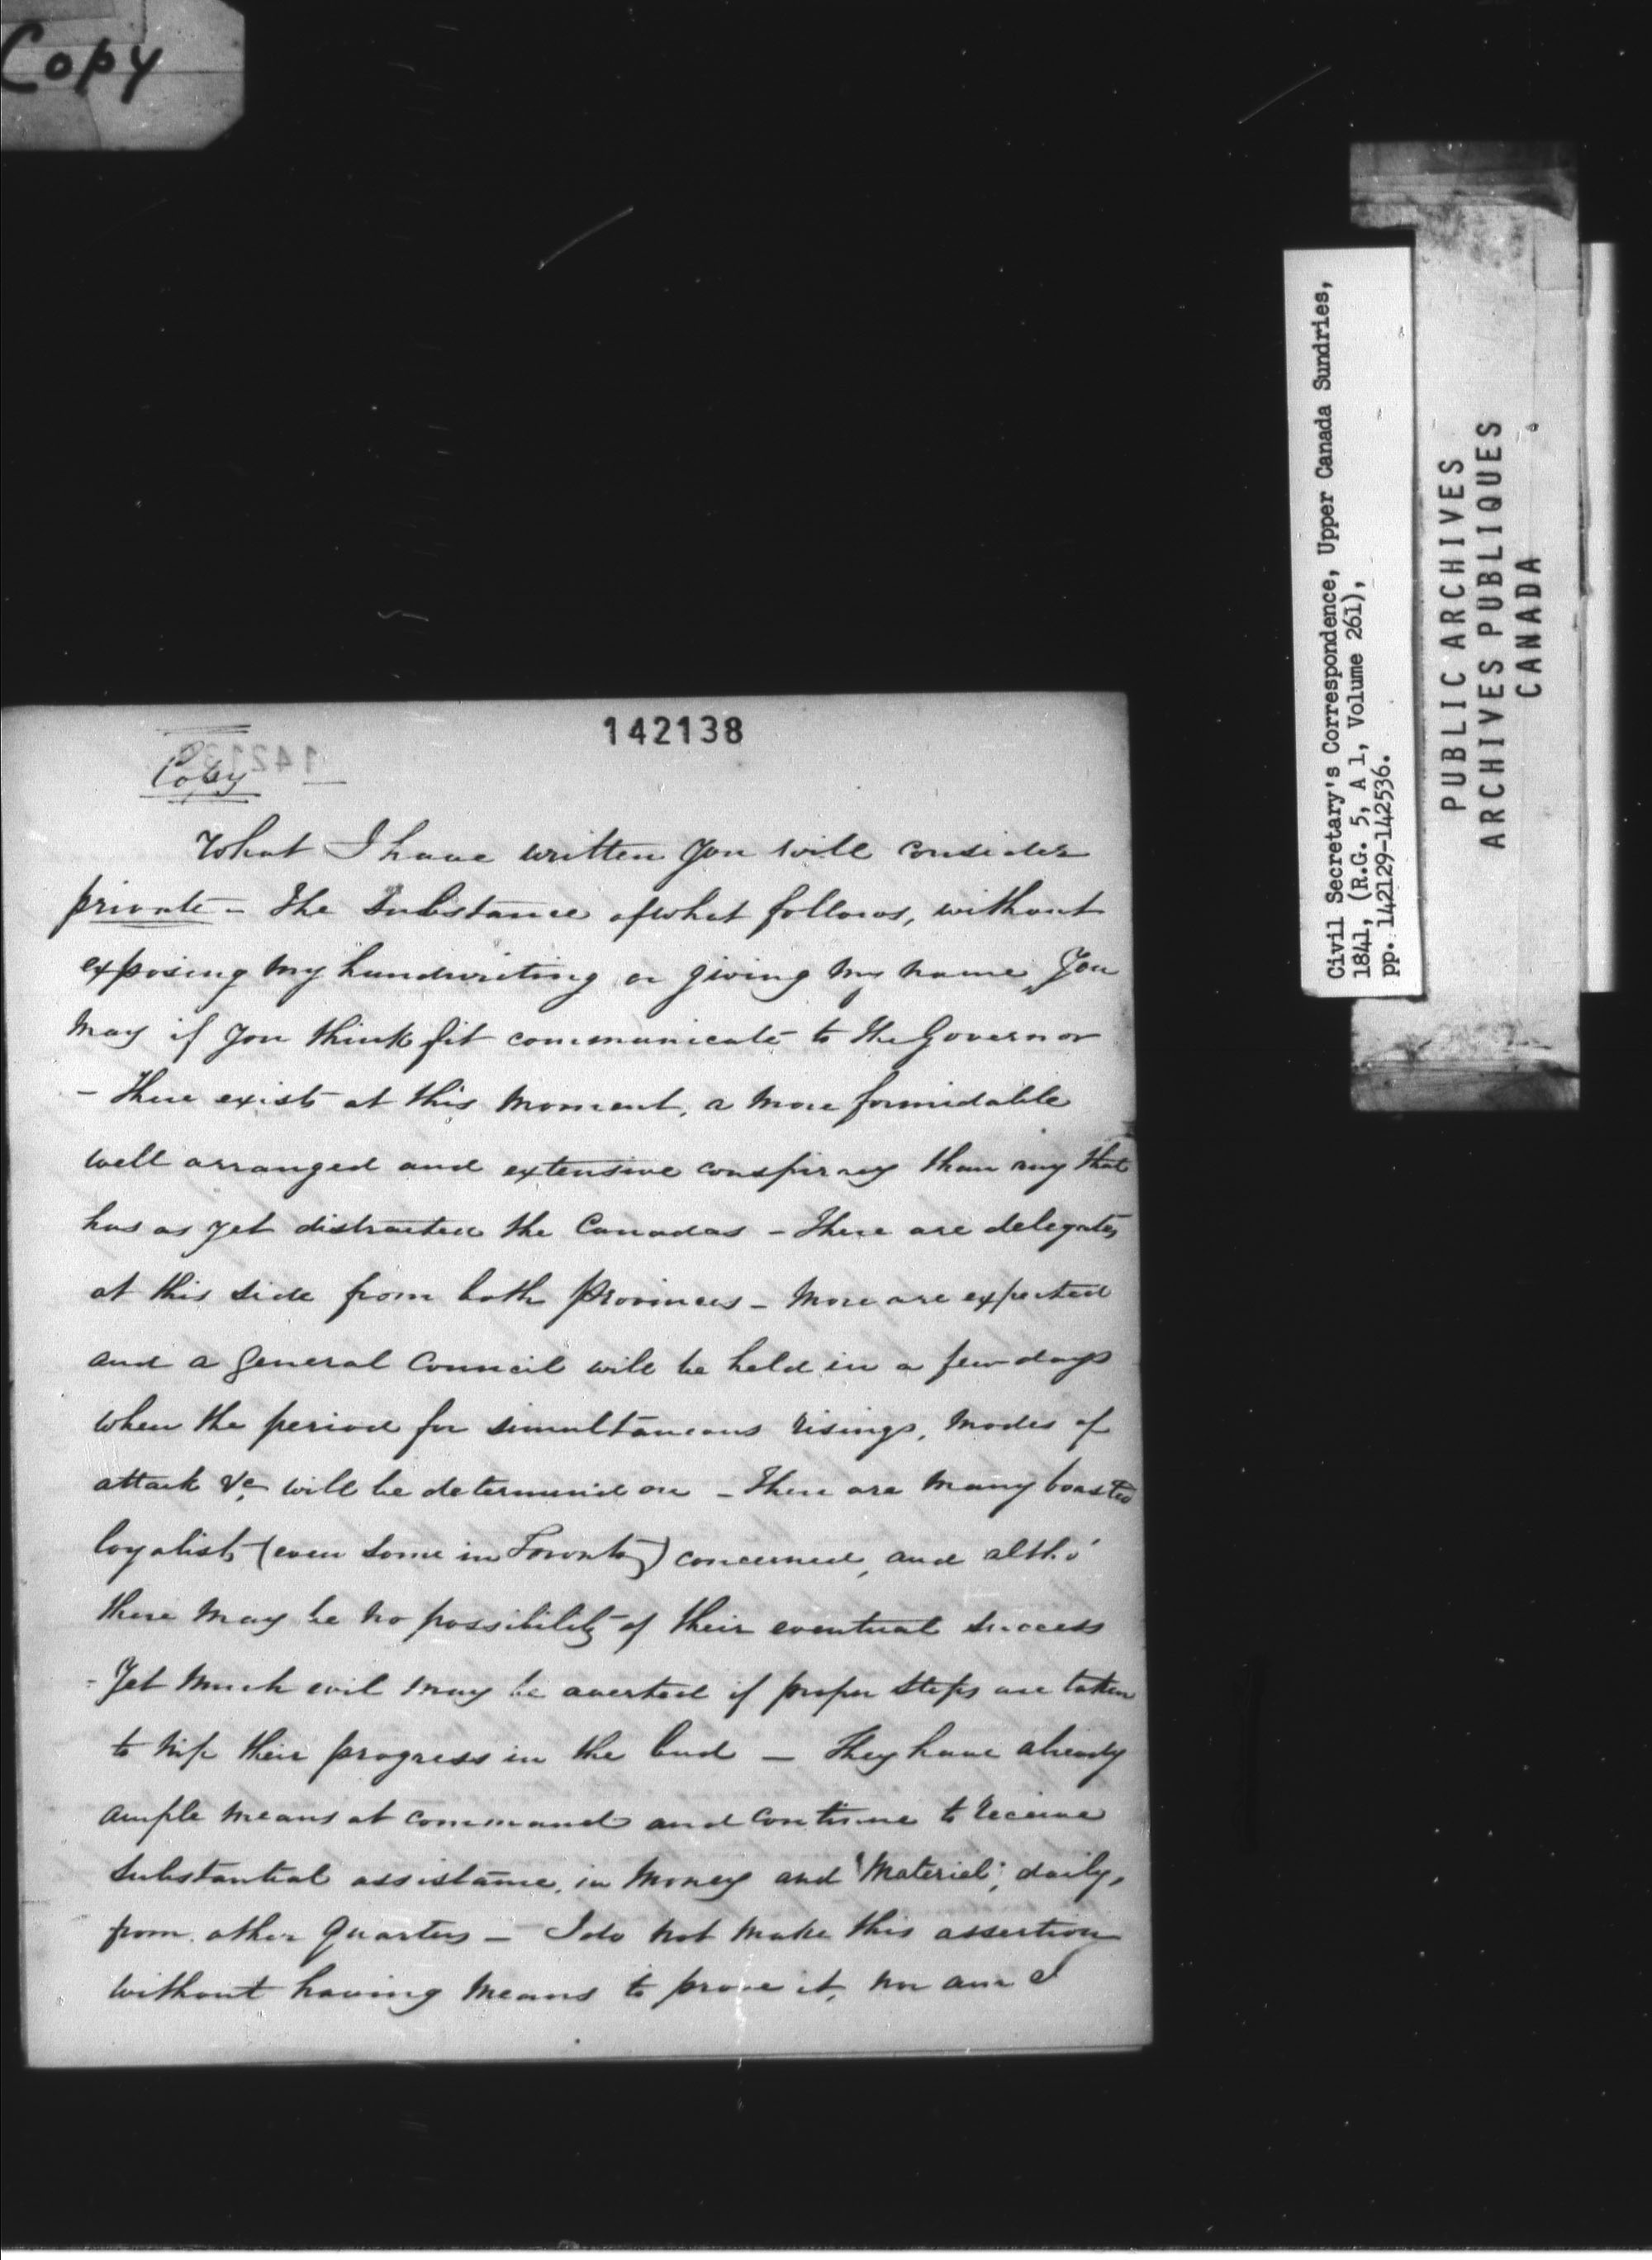 Copy
142138
Copy
What I have written you will consider
private - The Substance of what follows, without
exposing my handwriting or giving my name, you
may if you think fit communicate to the Governor
- There exists at this moment, a more formidable
well arranged and extensive conspiracy than any that
has as yet distracted the Canadas - There are delegates
at this side from both Provinces - More are expected
and a General Council will be held in a few days
when the period for simultaneous risings, modes of
attack &c will be determined on - There are many boasted
loyalists (even some in Toronto) concerned, and altho'
there may be no possibility of their eventual success
- Yet much evil may be averted if proper steps are taken
to nip their progress in the bud - They have already
ample means at command and continue to receive
substantial assistance, in money and 'Materiel', daily,
from other quarters - I do not make this assertion
without having means to prove it, nor am I
Civil Secretary's Correspondence, Upper Canada Sundries,
1841, (R.G. 5, A 1, Volume 261),
pp. 142129-142536.
PUBLIC ARCHIVES
ARCHIVES PUBLIQUES
CANADA